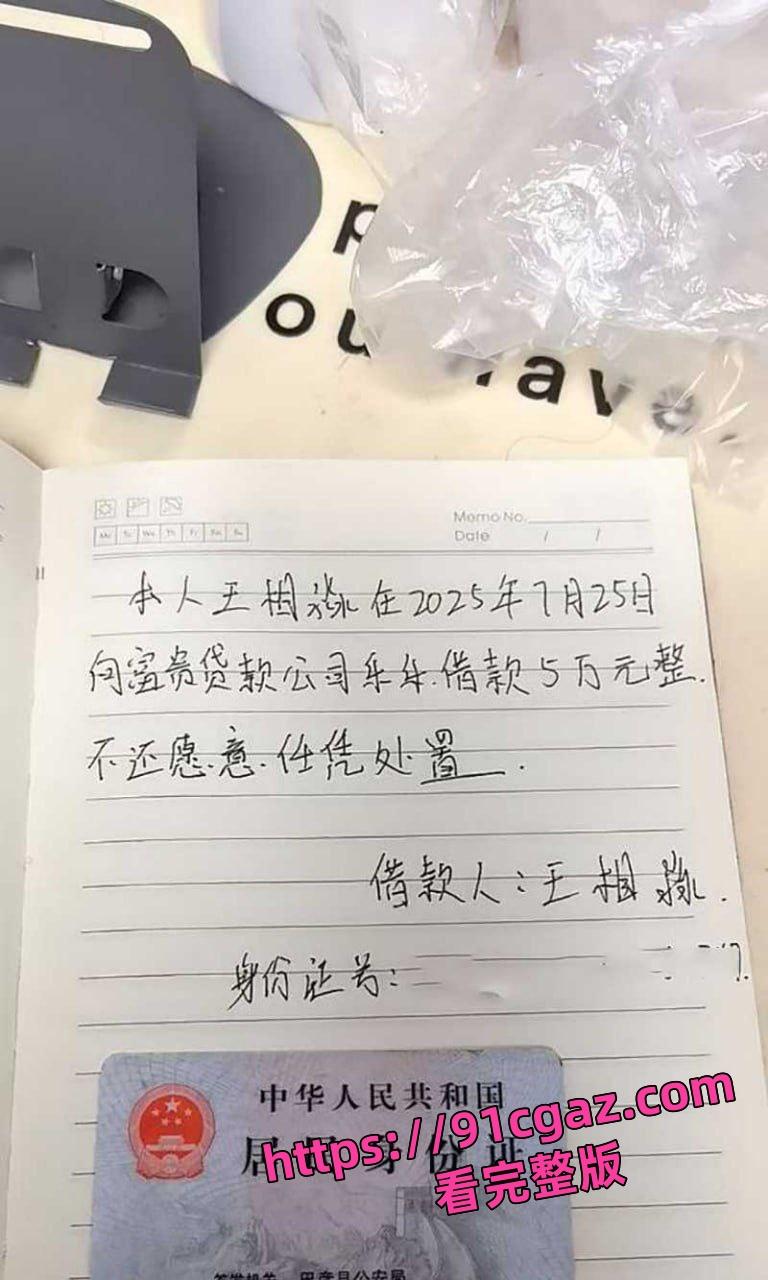 p
ou
ave.
Memo No.
Mo Tu We Th Fr Sa Su
Date / /
本人王相淼在2025年7月25日
向富贵贷款公司乐乐.借款5万元整.
不还愿意.任凭处置.
借款人:王相淼.
身份证号:
中华人民共和国
居民身份证
https://91cgaz.com
看完整版
签发机关
县公安局